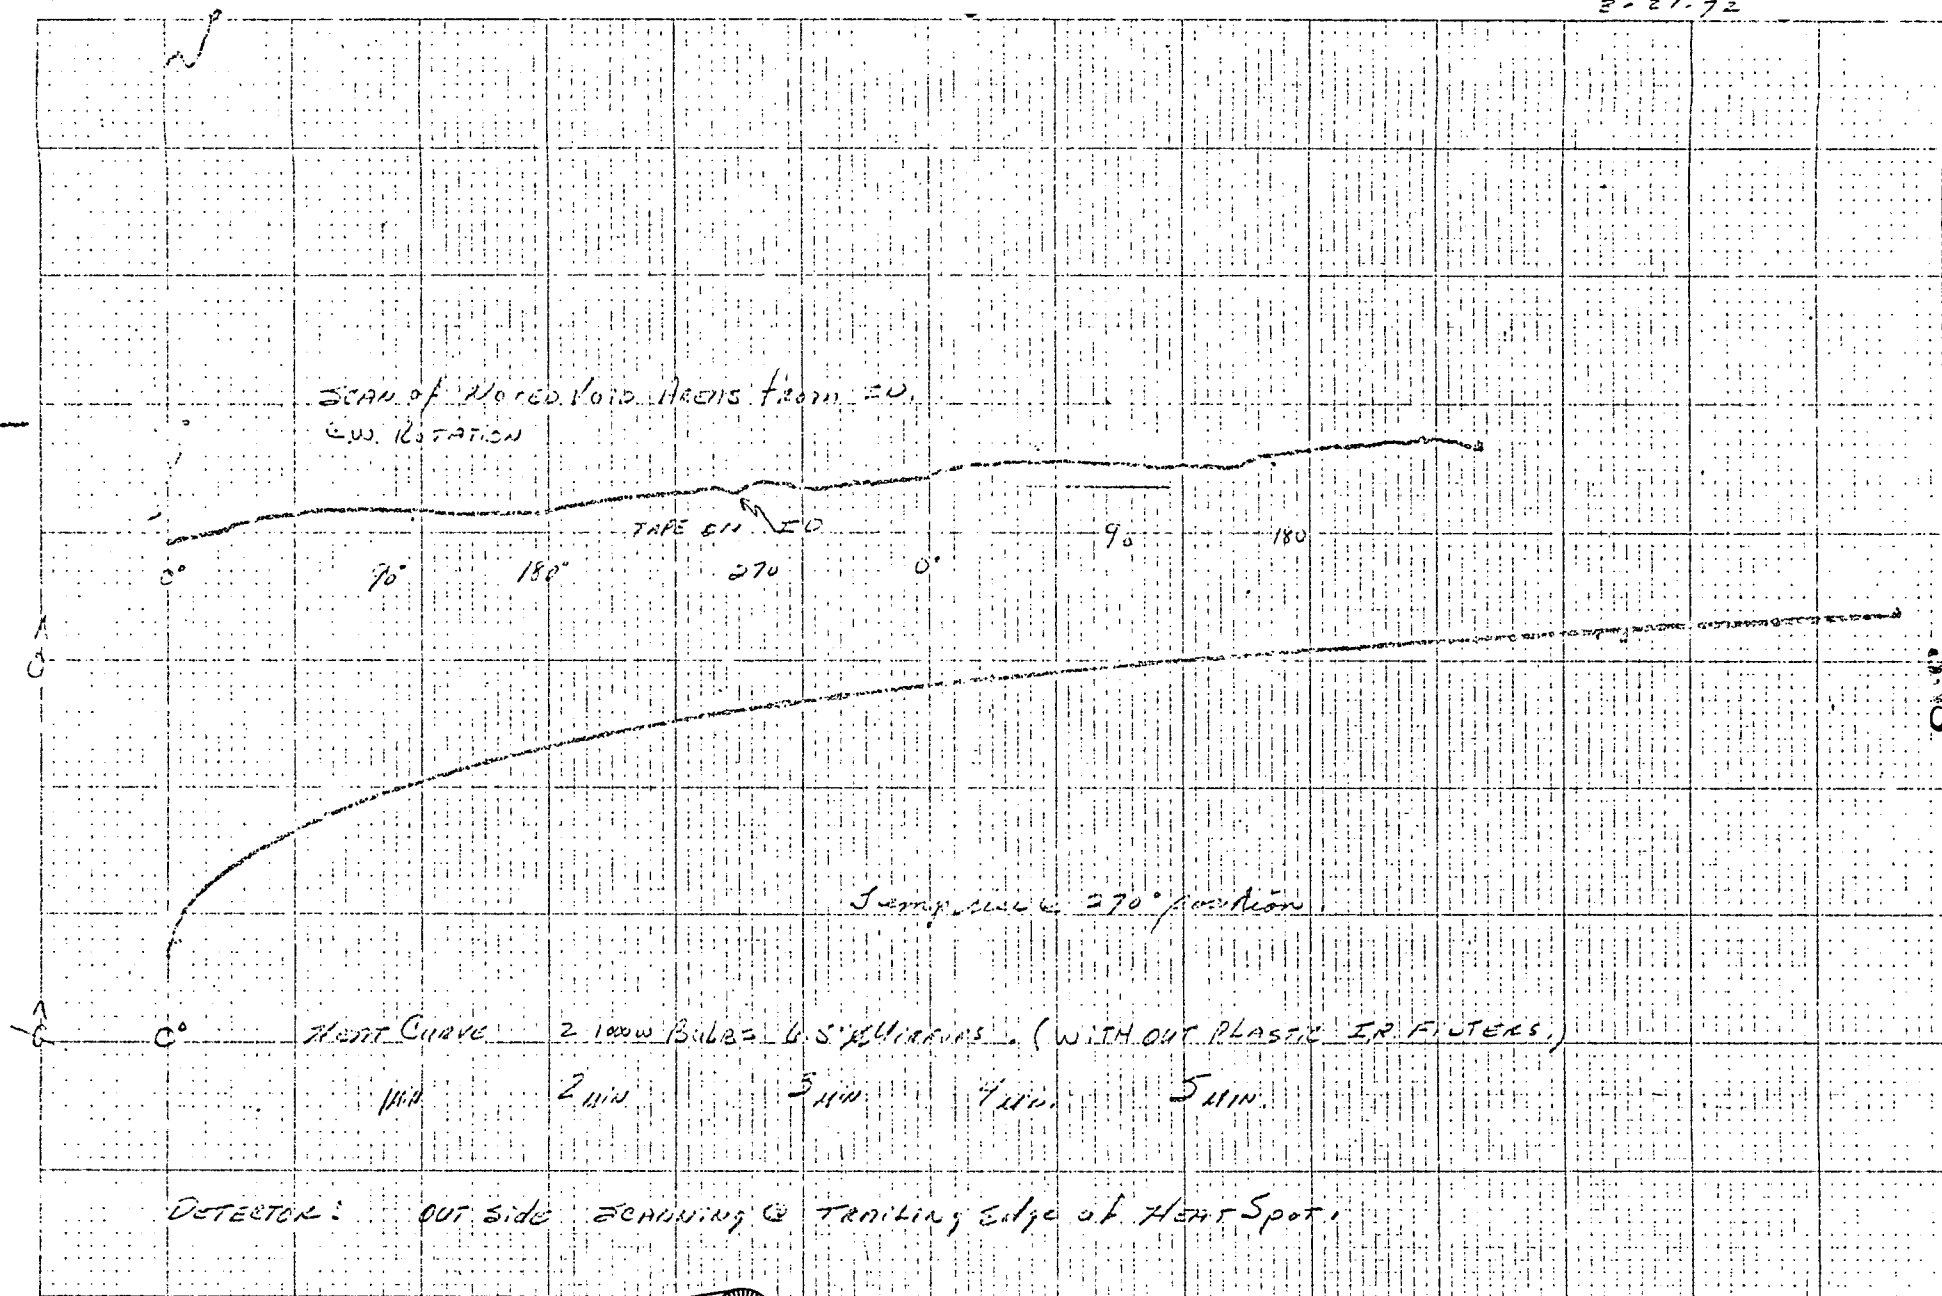 SCAN of NOTED VOID AREAS from
C.W. ROTATION
TAPE ON ID
90 180
0° 90° 180° 270 0°
Temp rise @ 270° position.
0° HEAT CURVE 2 1000W BULBS MIRRORS. (WITHOUT PLASTIC IR FILTERS.)
1 MIN 2 MIN 3 MIN 4 MIN. 5 MIN.
DETECTOR: OUTSIDE SCANNING @ TRAILING Edge of HEAT SPOT.